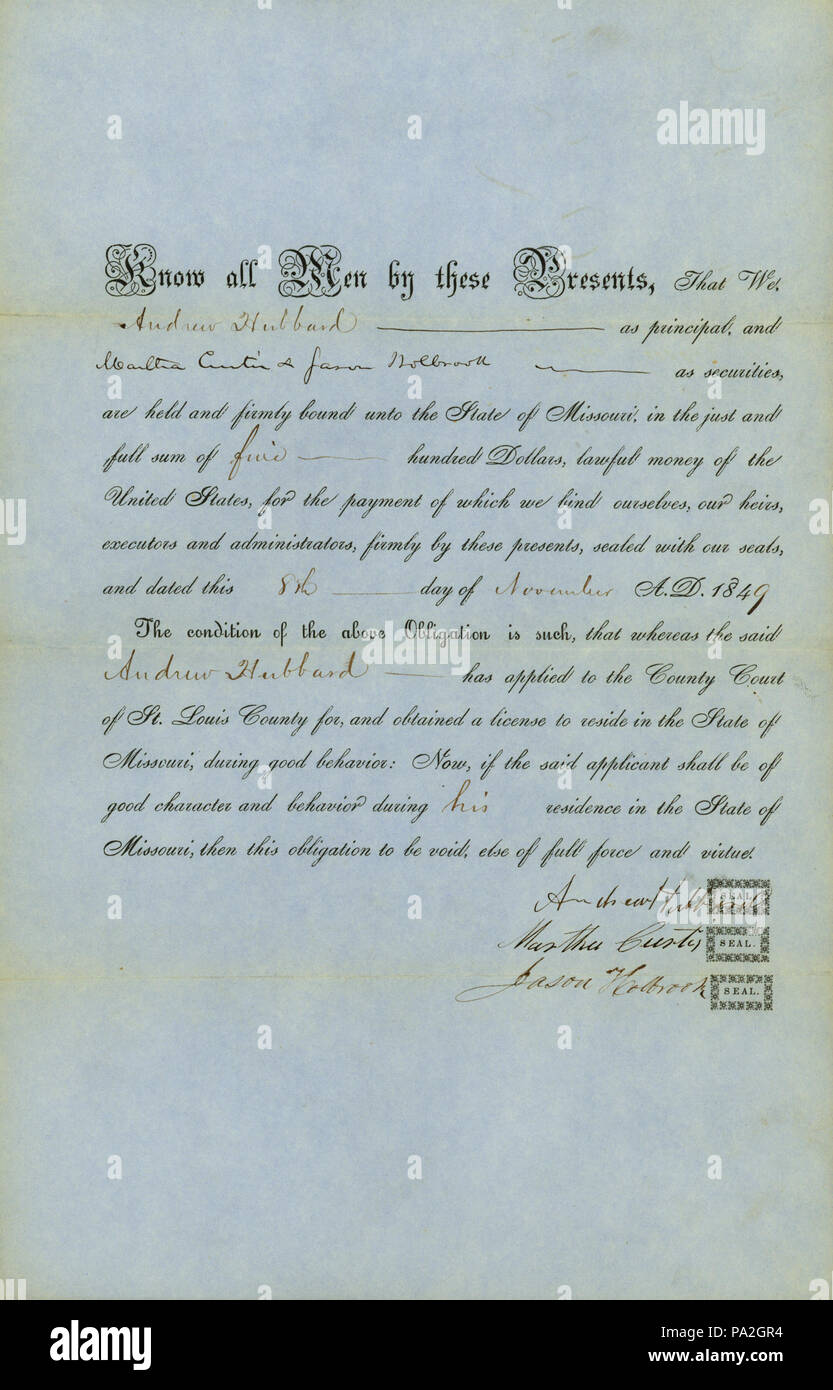 Know all Men by these Presents, That We,
Andrew Hubbard as principal, and
Martha Curtis & Jason Holbrook as securities,
are held and firmly bound unto the State of Missouri, in the just and
full sum of five hundred Dollars, lawful money of the
United States, for the payment of which we bind ourselves, our heirs,
executors and administrators, firmly by these presents, sealed with our seals,
and dated this 8th day of November A.D. 1849
The condition of the above Obligation is such, that whereas the said
Andrew Hubbard has applied to the County Court
of St. Louis County for, and obtained a license to reside in the State of
Missouri, during good behavior: Now, if the said applicant shall be of
good character and behavior during his residence in the State of
Missouri, then this obligation to be void, else of full force and virtue.
Andrew Hubbard SEAL.
Martha Curtis SEAL.
Jason Holbrook SEAL.
alamy
alamy
alamy
alamy
Image ID: PA2GR4
www.alamy.com